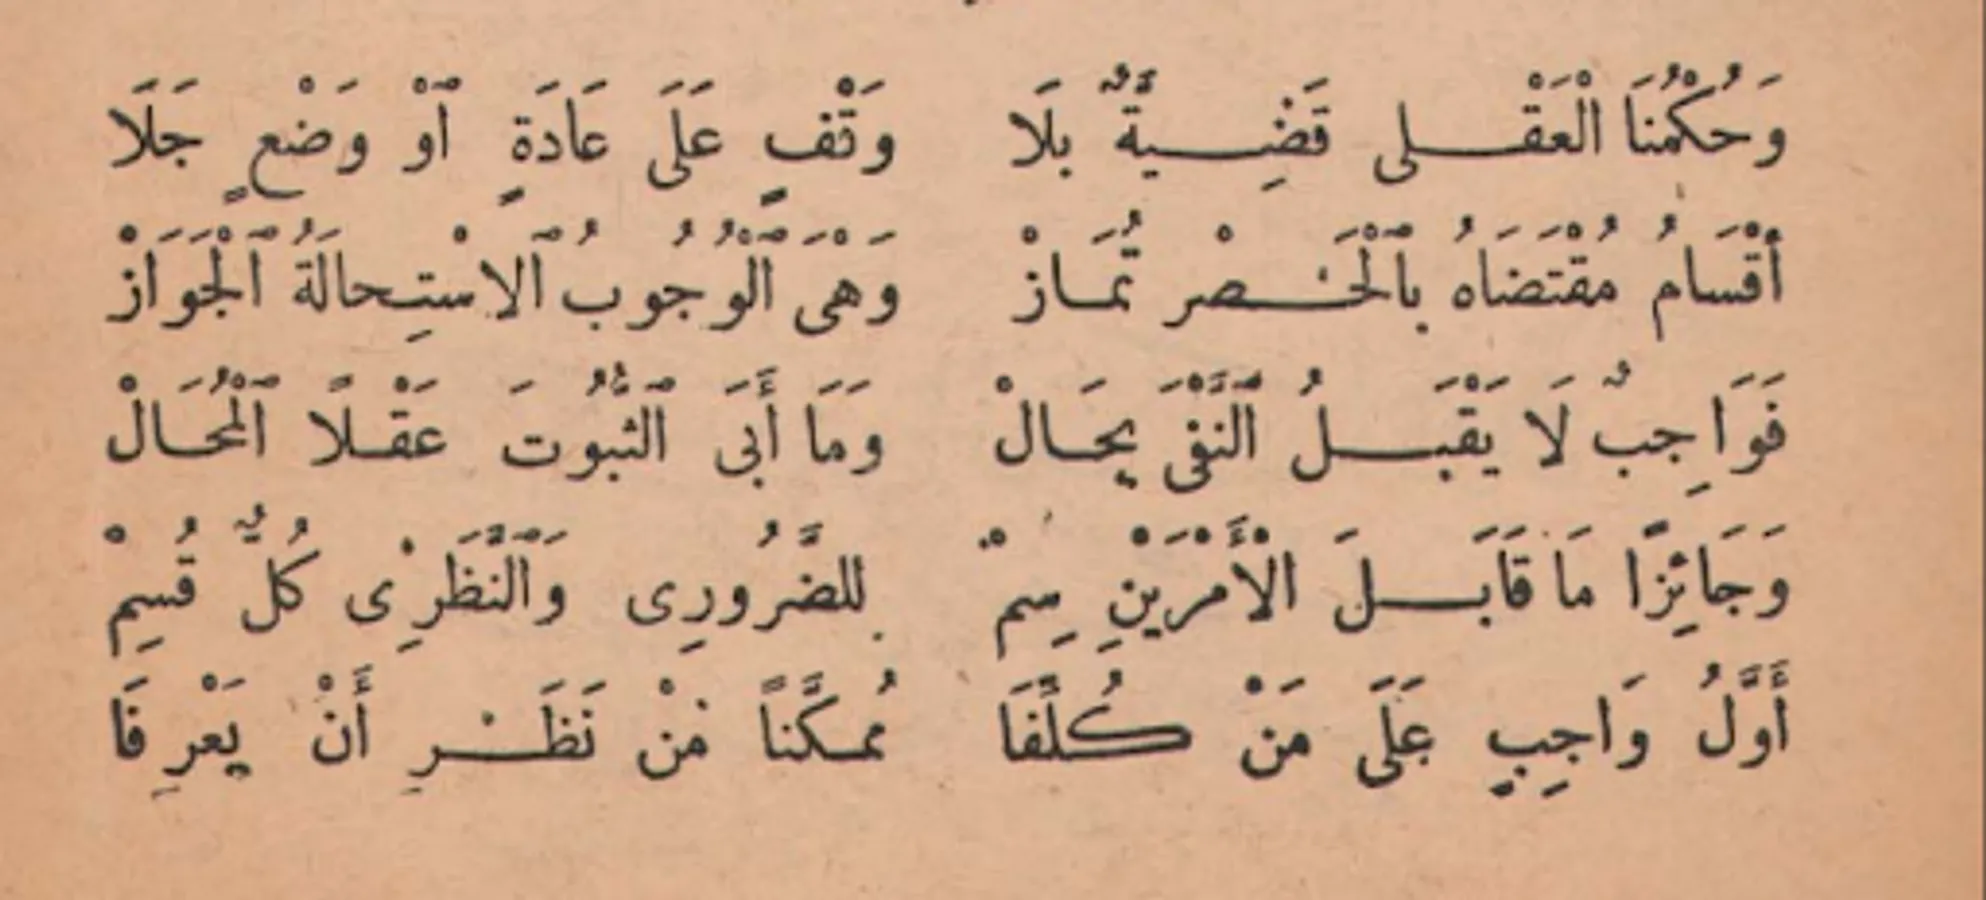 وَحُكْمُنَا الْعَقْلِى قَضِيَّةٌ بِلَا وَقْفٍ عَلَى عَادَةٍ اَوْ وَضْعٍ جَلَا
أَقْسَامُ مُقْتَضَاهُ بِالْحَصْرِ تُمَازْ وَهْىَ الْوُجُوبُ الِاسْتِحَالَةُ الْجَوَازْ
فَوَاجِبٌ لَا يَقْبَلُ النَّفْىَ بِحَالْ وَمَا أَبَى الثُّبُوتَ عَقْلًا الْمُحَالْ
وَجَائِزًا مَا قَابَلَ الْأَمْرَيْنِ سِمْ لِلضَّرُورِى وَالنَّظَرِى كُلٌّ قُسِمْ
أَوَّلُ وَاجِبٍ عَلَى مَنْ كُلِّفَا مُمَكَّنًا مِنْ نَظَرٍ أَنْ يَعْرِفَا